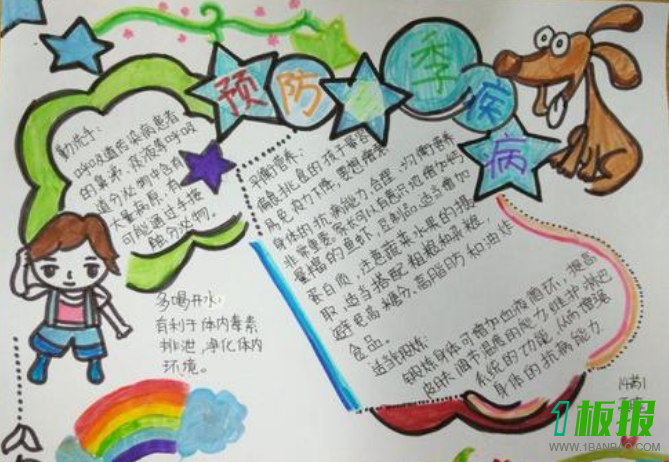 预防
季疾
病
勤洗手:
呼吸道传染病患者
的鼻涕、痰液等呼吸
道分泌物中含有
大量病原,有
可能通过手接
触分泌物。
多喝开水:
有利于体内毒素
排泄,净化体内
环境。
平衡营养:
偏食挑食的孩子
易免疫力下降,
身体的抗病能力,合理、均衡营养
非常重要。家长可以有意识地增加
量的鱼虾、豆制品,适当增加
蛋白质,注意蔬菜水果的摄
取,适当搭配粗粮和杂粮,
避免高糖分、高脂肪和油炸
食品。
适当锻炼:
锻炼身体可增加血液循环,提高
皮肤调节温度的能力
系统的功能,从而增强
身体的抗病能力
1板报
WWW.1BANBAO.COM